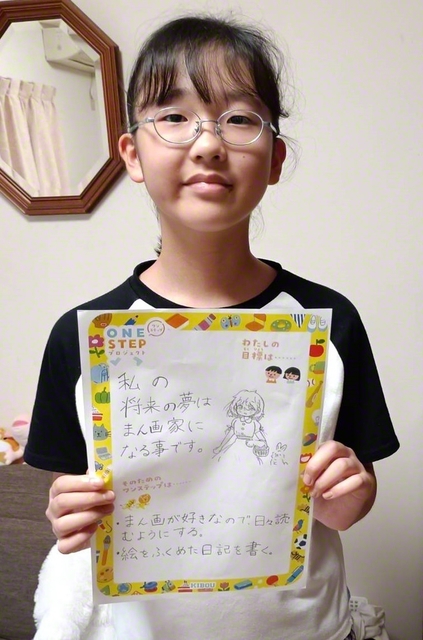 ONE
STEP
プロジェクト
わたしの
目標は………
私の
将来の夢は
まん画家に
なる事です。
そのための
ワンステップは……
・まん画が好きなので日々読
むようにする。
・絵をふくめた日記を書く。
KIBOU